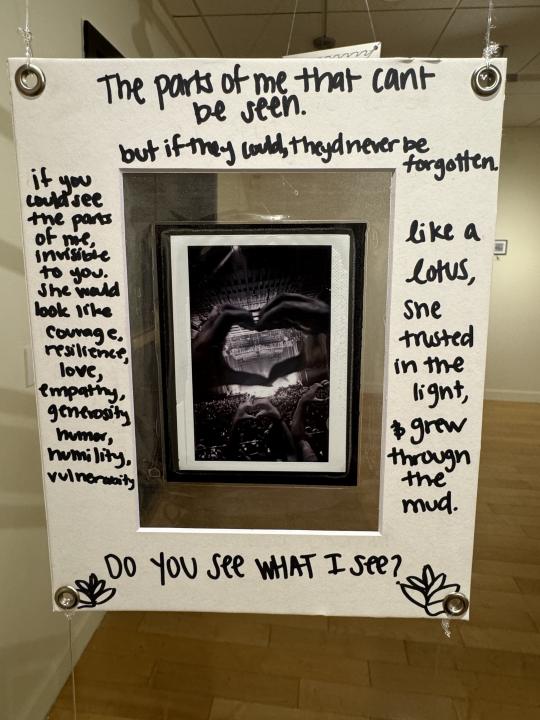 The parts of me that cant
be seen.
but if they could, theyd never be
forgotten.
if you
could see
the parts
of me,
invisible
to you.
she would
look like
courage,
resilience,
love,
empathy,
generosity
humor,
humility,
vulnerosity
like a
lotus,
she
trusted
in the
light,
& grew
through
the
mud.
DO YOU See WHAT I see?